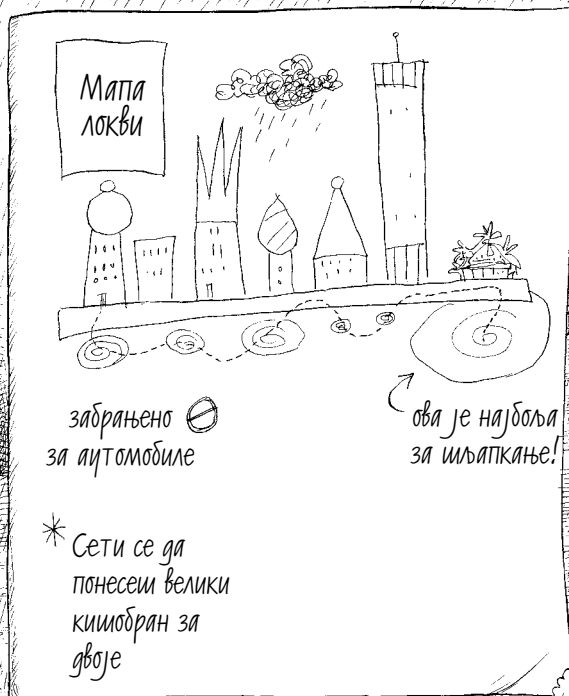 Мапа
локви
забрањено
за аутомобиле
ова је најбоља
за шљапкање!
* Сети се да
понесеш велики
кишобран за
двоје